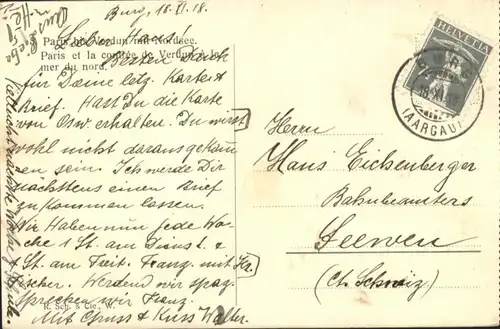 Burg, 18. XI. 18.
Lieber Hans!
Paris bis Verdun mit Nordsee.
Paris et la contrée de Verdun à la
mer du nord.
Besten Dank
für Deine letz. Karte &
Brief. Hast Du die Karte
von Osw. erhalten. Du wirst
wohl nicht daraus gekom
men sein. Ich werde Dir
nächstens einen Brief
zukommen lassen.
Wir Haben nun jede Wo-
che 1 St. am Diens t. &
& St. am Freit. Franz. mit Hr.
Fischer. Werden wir
sprechen wir Franz.
Mit Gruss & Kuss Walter.
R. Sch. & Cie., W.
HELVETIA
BURG
18. XI. 18
(AARGAU)
Herrn
Hans Eichenberger
Bahnbeamters
Seewen
(Ct. Schwyz)